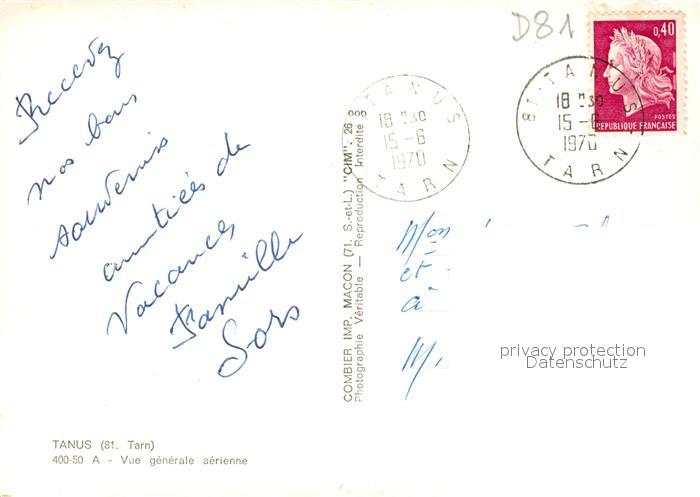 D81
0,40
POSTES
REPUBLIQUE FRANÇAISE
81-TANUS
18 H30
15-6
1970
TARN
TANUS
18 H30
15-6
1970
TARN
Recevez
nos bons
souvenirs
amitiés de
Vacances
Famille
Sors
COMBIER IMP. MACON (71. S.-et-L.) "CIM". 26
Photographie Véritable — Reproduction Interdite
Mon
et
à
privacy protection
Datenschutz
TANUS (81. Tarn)
400-50 A - Vue générale aérienne